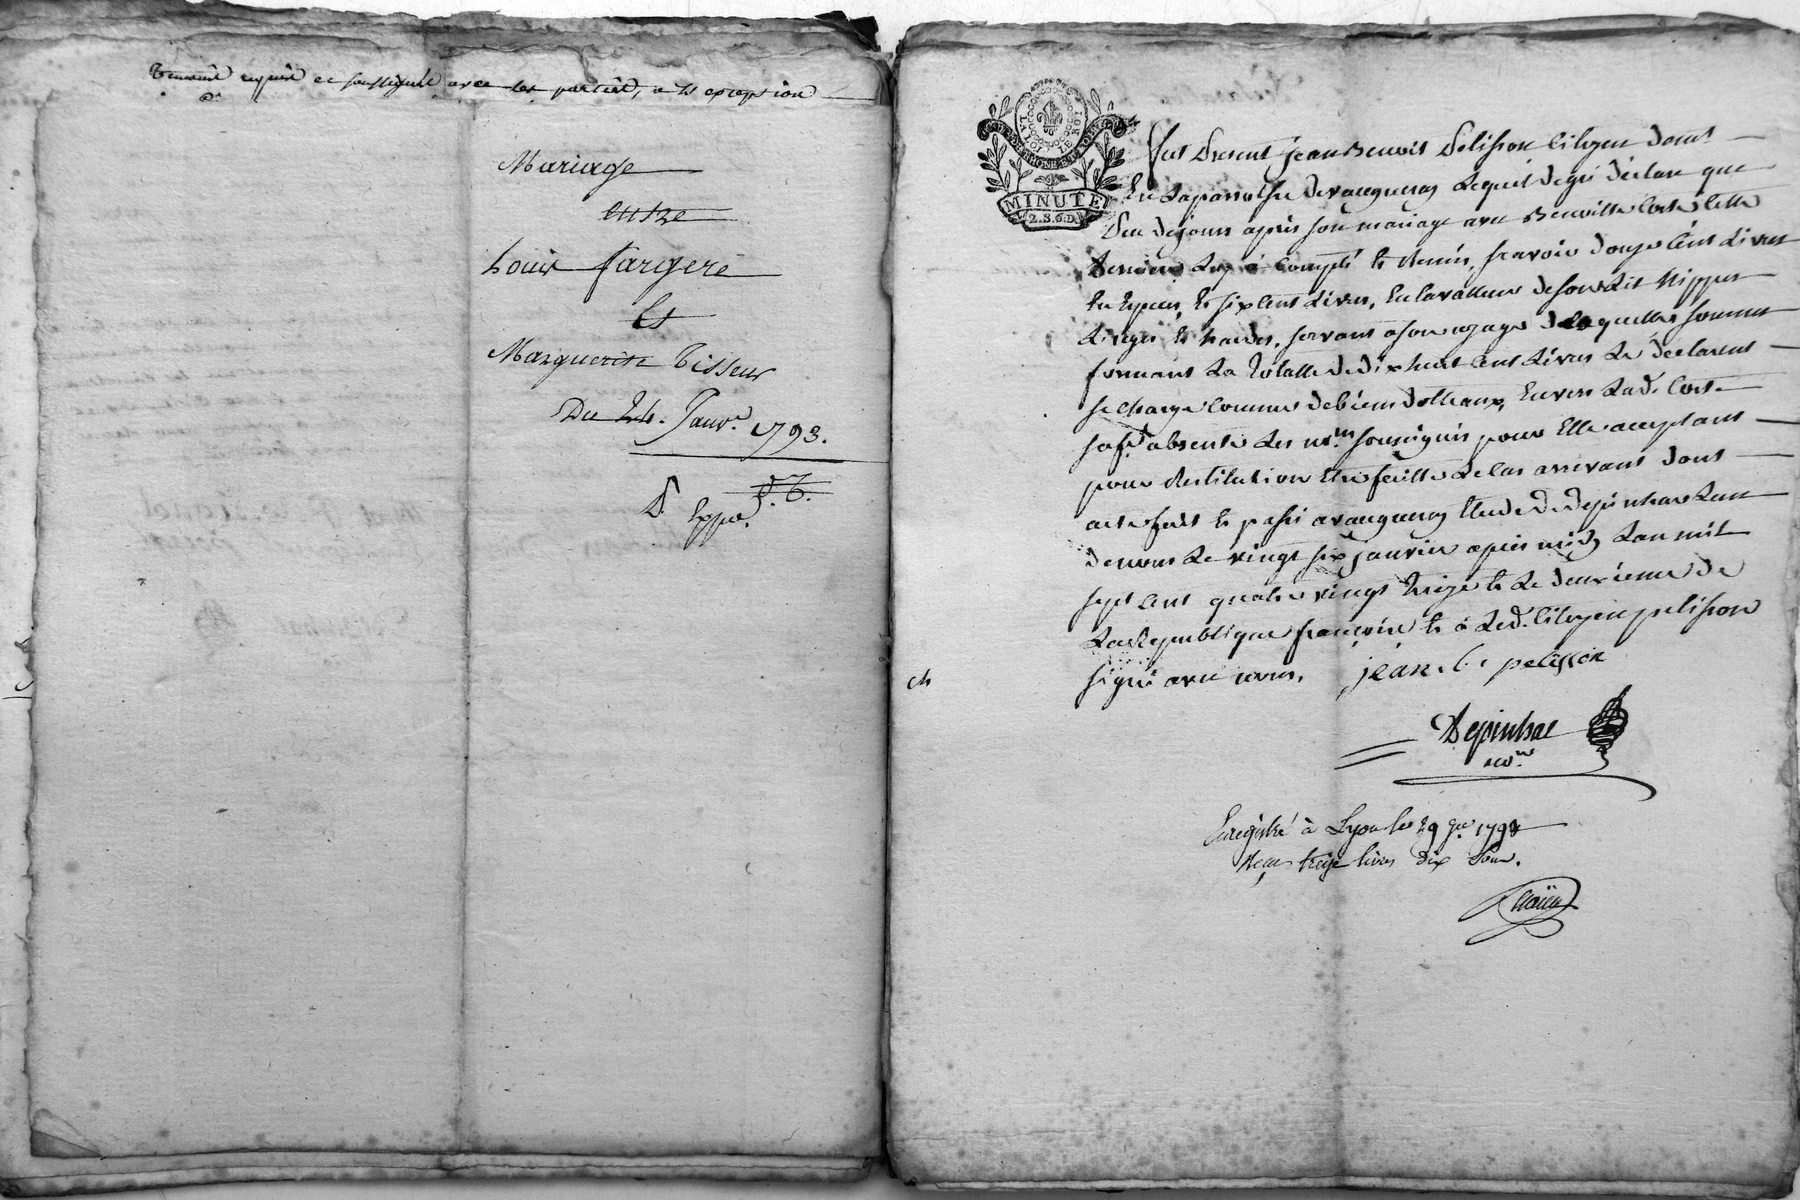 requise et soussignée avec les parties, a l'exception
Mariage
entre
Louis Fargere
Et
Marguerite Tisseur
Du 24. Janvr. 1793.
Expé.
LA LOI LE ROI
MINUTE
2.S.6.D
Fut Present Jean Benoit Pelisson Citoyen demt
En la paroisse de vaugneray Lequel de gré déclare que
Peu de jours après son mariage avec Benoitte Coste Cette
derniere Luy a Compté et Remis, scavoir douze Cent Livres
En Especes, et six Cent Livres, En la valleur de son Lit Nippes
Linges et hardes, servant a son usage desquelles sommes
formant La Totalle de dix huit Cent Livres Le declarent
se charge Comme de biens dotteaux, Envers Lad. Coste
sa fe. absente Les nores soussignés pour Elle acceptant
pour Restitution Etre faitte Le Cas arrivant dont
acte fait et passé a vaugneray Etude de Depinhac Lun
de nous Le vingt six janvier après midy Lan mil
sept Cent quatre vingt treize et Le deuxieme de
La Republique françoise et a Led. Citoyen pelisson
signé avec nous. jean. b. pelisson
Depinhac
nore
Enregistré à Lyon le 29 Jer 1793
Reçu treize livres dix sous.